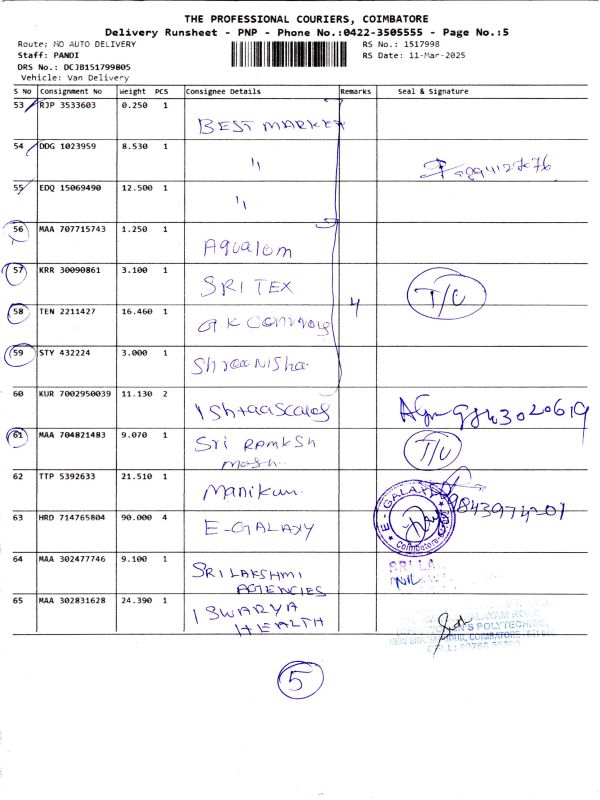 THE PROFESSIONAL COURIERS, COIMBATORE
Delivery Runsheet - PNP - Phone No.:0422-3505555 - Page No.:5
Route; NO AUTO DELIVERY
RS No.: 1517998
Staff: PANDI
RS Date: 11-Mar-2025
DRS No.: DCJB151799805
Vehicle: Van Delivery
S No Consignment No Weight PCS Consignee Details Remarks Seal & Signature
53 RJP 3533603 0.250 1 BEST MARKET
54 DDG 1023959 8.530 1 "
55 EDQ 15069490 12.500 1 "
56 MAA 707715743 1.250 1 Aqualom
57 KRR 30090861 3.100 1 SRI TEX T/C
58 TEN 2211427 16.460 1 4
59 STY 432224 3.000 1
60 KUR 7002950039 11.130 2 9843020619
61 MAA 704821483 9.070 1 Sri RAMKSH T/C
62 TTP 5392633 21.510 1 Manikum
63 HRD 714765804 90.000 4 E-GALAXY E-GALAXY Coimbatore
64 MAA 302477746 9.100 1 SRI LAKSHMI AGENCIES SRI LA
65 MAA 302831628 24.390 1 ISWARYA HEALTH
5